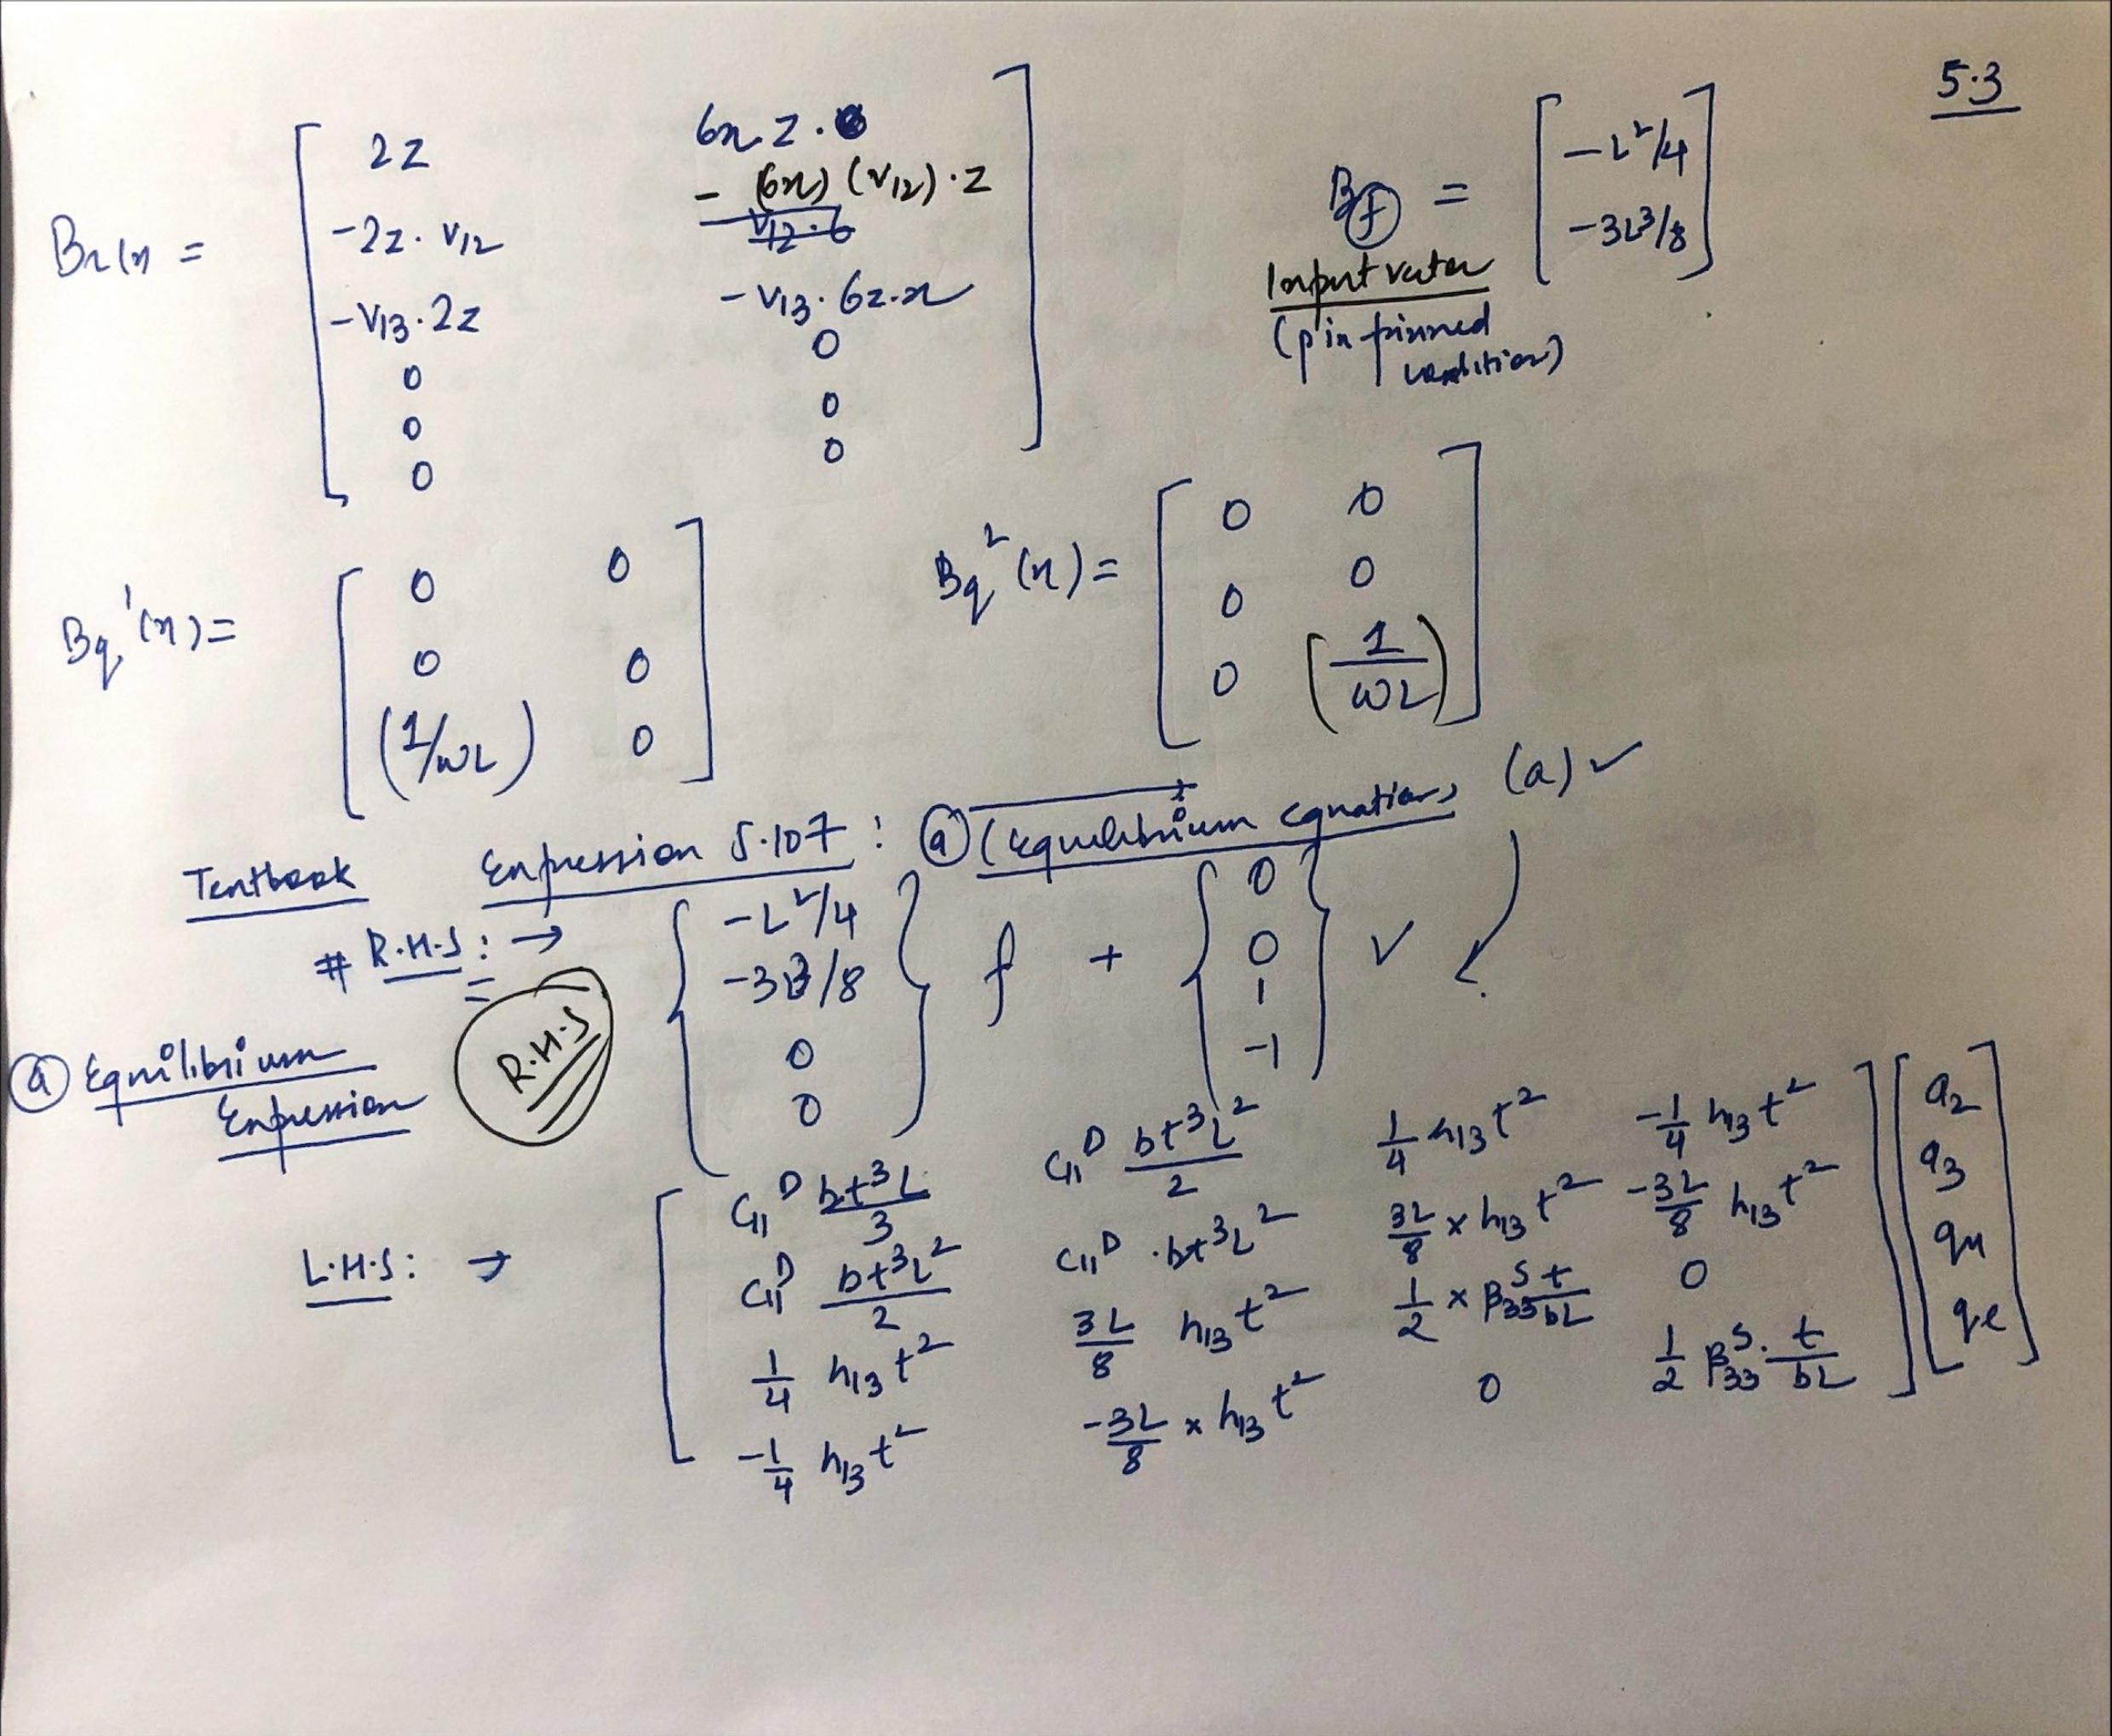 5.3
Br(x) = [ 2z   6x z.
-2z. ν12   - (6x) (ν12).z
-ν13.2z   -ν13. 6z.x
0   0
0   0
0   0 ]
B(f) = [ -L²/4
-3L³/8 ]
Input vector
(pin-pinned
condition)
Bq¹(x) = [ 0   0
0   0
(1/wL)   0 ]
Bq²(x) = [ 0   0
0   0
0   (1/wL) ]
Textbook Expression 5.107 : (a) (Equilibrium equations (a) ✓
# R.H.S : → { -L²/4   -3L³/8   0   0 } f + { 0   0   1   -1 } V
R.H.S
(a) Equilibrium
Expression
L.H.S : →
[ C11^D bt³L/3   C11^D bt³L²/2   1/4 h13t²   -1/4 h13t² ] [ a2
C11^D bt³L²/2   C11^D . bt³L²   3L/8 x h13t²   -3L/8 h13t²   a3
1/4 h13t²   3L/8 h13t²   1/2 x β33^S t/bL   0   qu
-1/4 h13t²   -3L/8 x h13t²   0   1/2 β33^S . t/bL ]   qe ]